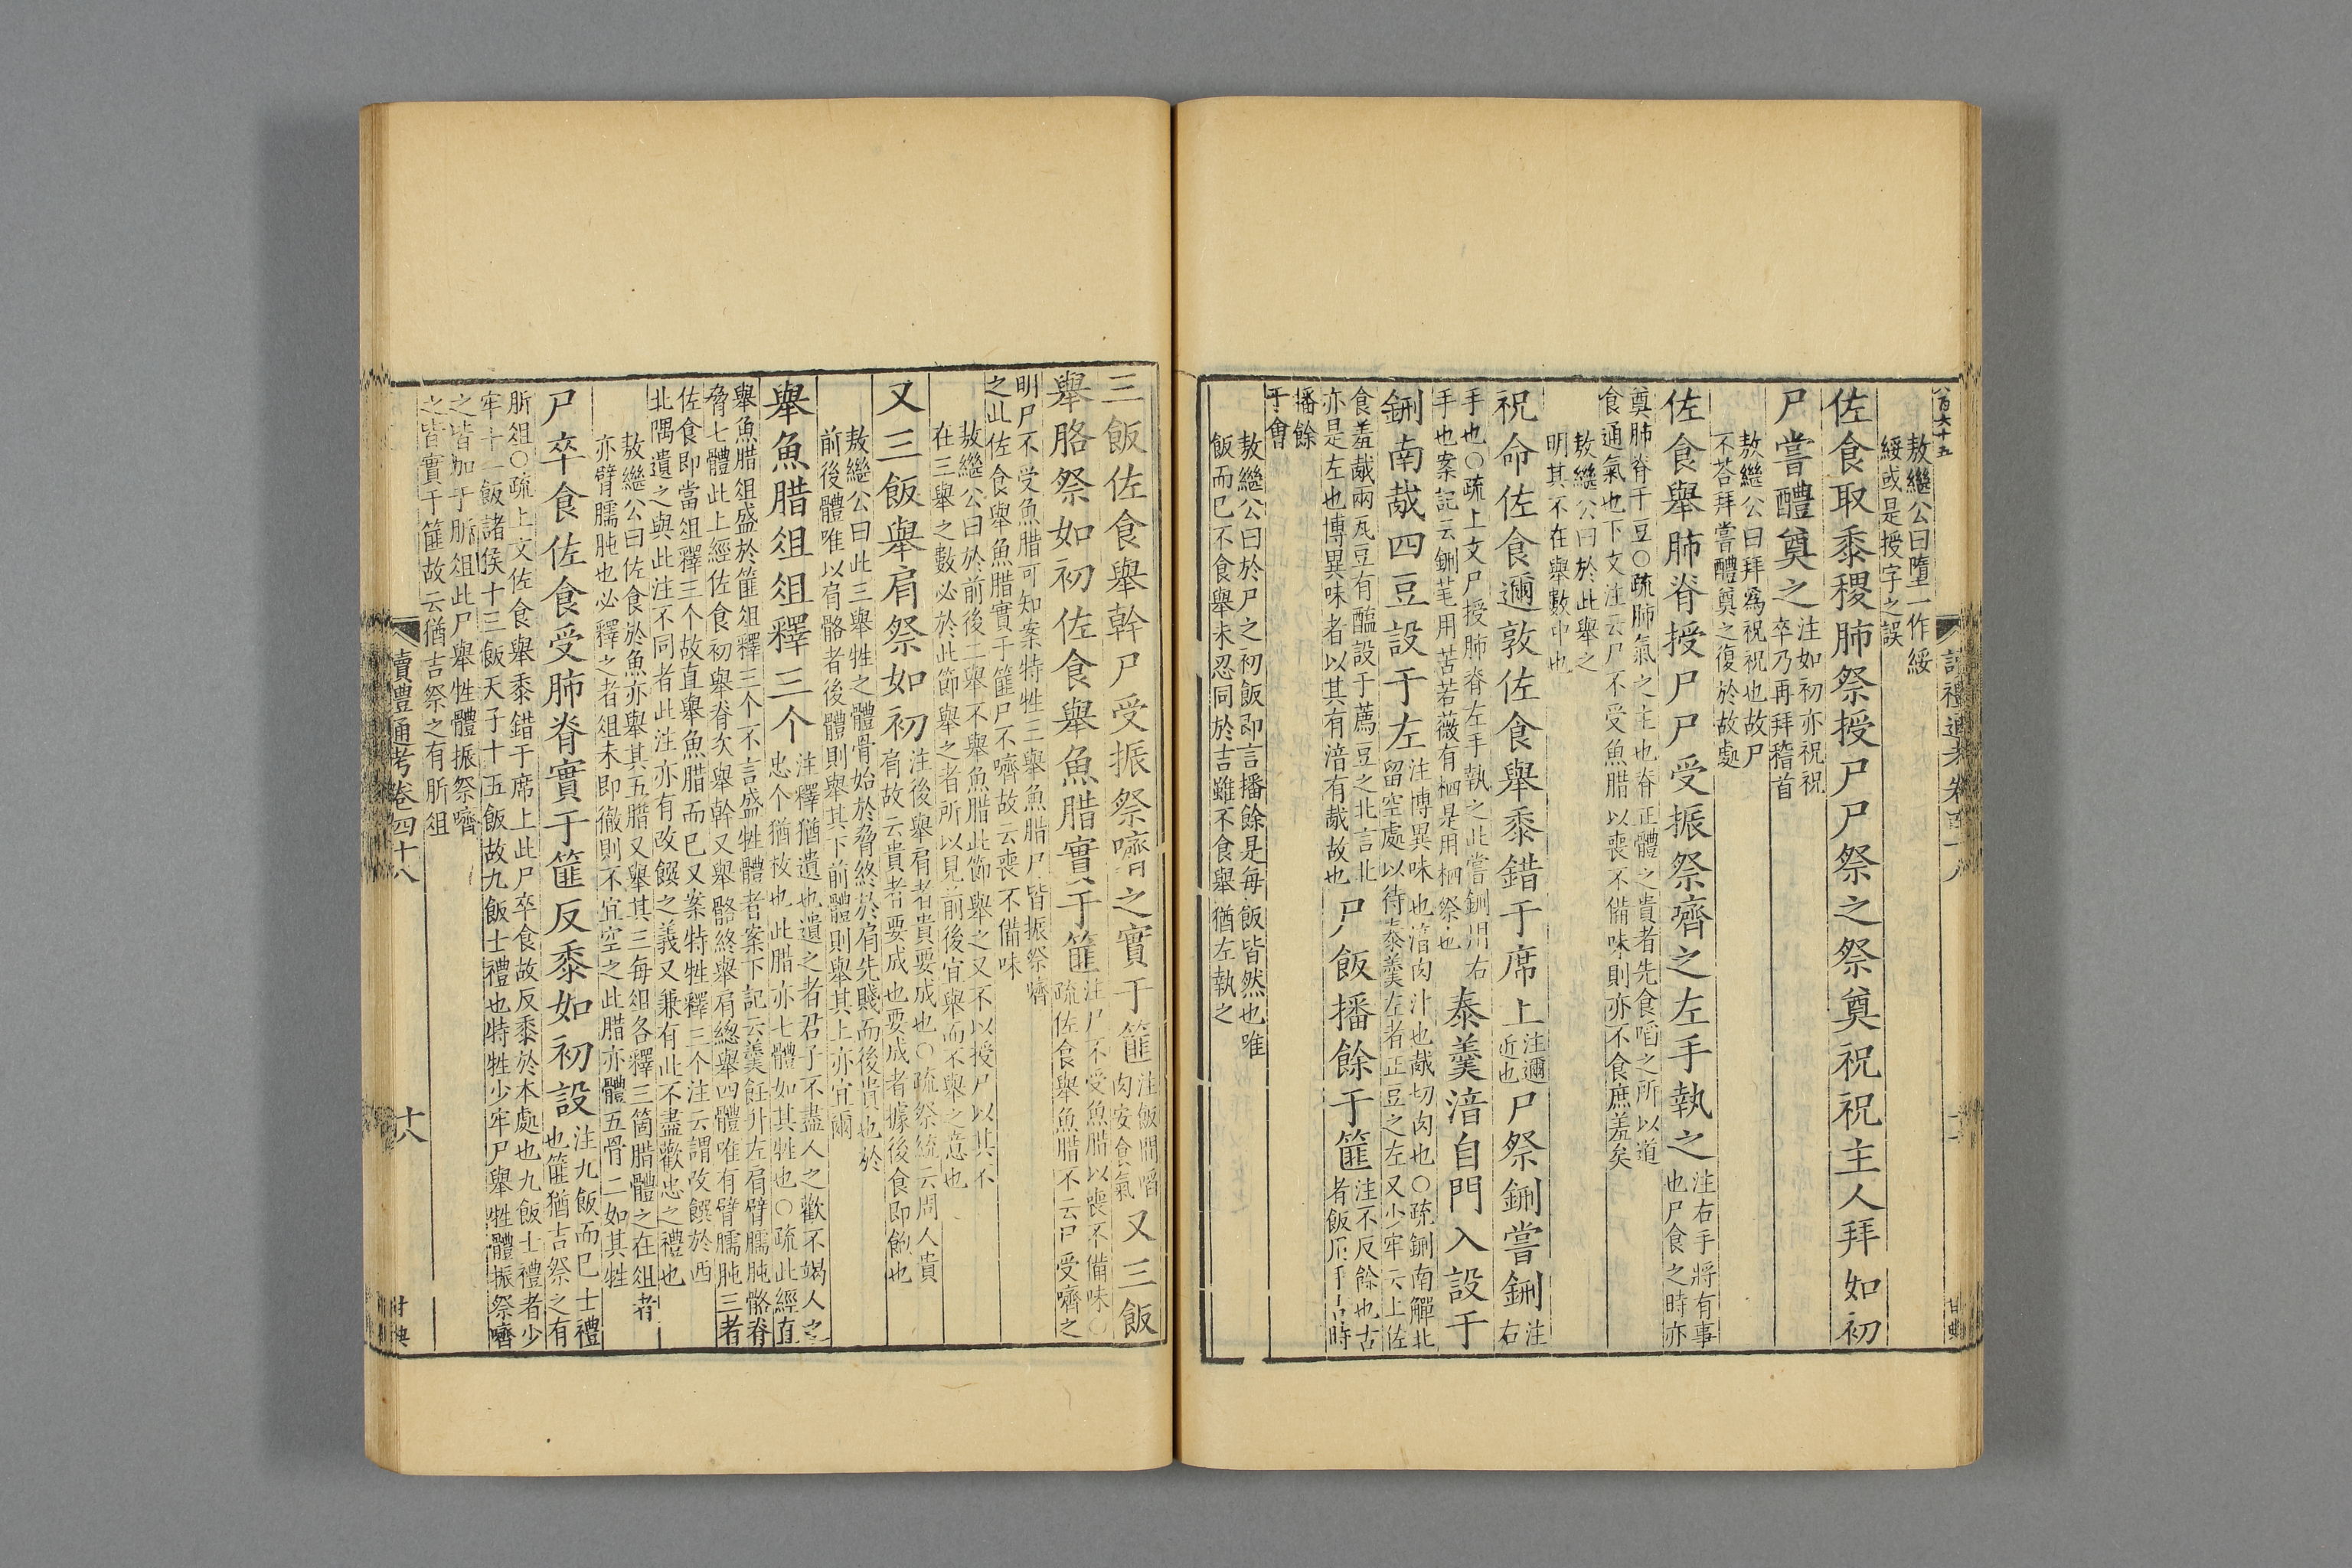 敖繼公曰墮一作綏
綏或是授字之誤
佐食取黍稷肺祭授尸尸祭之祭奠祝祝主人拜如初
尸嘗醴奠之
注如初亦祝祝
卒乃再拜稽首
敖繼公曰拜爲祝祝也故尸
不荅拜嘗醴奠之復於故處
佐食舉肺脊授尸尸受振祭嚌之左手執之
注右手將有事
也尸食之時亦
奠肺脊于豆○疏肺氣之主也脊正體之貴者先食啗之所以道
食通氣也下文注云尸不受魚腊以喪不備味則亦不食庶羞矣
敖繼公曰於此舉之
明其不在舉數中也
祝命佐食邇敦佐食舉黍錯于席上
注邇
近也
尸祭鉶嘗鉶
注
右
手也○疏上文尸授肺脊左手執之此嘗鉶用右
手也案記云鉶芼用苦若薇有柶是用柶祭也
泰羹湆自門入設于
鉶南胾四豆設于左
注博異味也湆肉汁也胾切肉也○疏鉶南觶北
留空處以待泰羹左者正豆之左又少牢云上佐
食羞胾兩瓦豆有醢設于薦豆之北言北
亦是左也博異味者以其有湆有胾故也
尸飯播餘于篚
注不反餘也古
者飯用手吉時
播餘
于會
敖繼公曰於尸之初飯即言播餘是每飯皆然也唯
飯而已不食舉未忍同於吉雖不食舉猶左執之
三飯佐食舉幹尸受振祭嚌之實于篚
注飯間啗
肉安食氣
又三飯
舉胳祭如初佐食舉魚腊實于篚
注尸不受魚腊以喪不備味○
疏佐食舉魚腊不云尸受嚌之
明尸不受魚腊可知案特牲三舉魚腊尸皆振祭嚌
之此佐食舉魚腊實于篚尸不嚌故云喪不備味
敖繼公曰於前後二舉不舉魚腊此節舉之又不以授尸以其不
在三舉之數必於此節舉之者所以見前後宜舉而不舉之意也
又三飯舉肩祭如初
注後舉肩者貴要成也○疏祭統云周人貴
肩故云貴者要成也要成者據後食即飽也
敖繼公曰此三舉牲之體骨始於脅終於肩先賤而後貴也於
前後體唯以肩骼者後體則舉其下前體則舉其上亦宜爾
舉魚腊俎俎釋三个
注釋猶遺也遺之者君子不盡人之歡不竭人之
忠个猶枚也此腊亦七體如其牲也○疏此經直
舉魚腊俎盛於篚俎釋三个不言盛牲體者案下記云羹飪升左肩臂臑肫骼脊
脅七體此上經佐食初舉脊次舉幹又舉骼終舉肩總舉四體唯有臂臑肫三者
佐食即當俎釋三个故直舉魚腊而已又案特牲釋三个注云謂改饌於西
北隅遺之與此注不同者此注亦有改饌之義又兼有此不盡歡忠之禮也
敖繼公曰佐食於魚亦舉其五腊又舉其三每俎各釋三箇腊體之在俎者
亦臂臑肫也必釋之者俎未即徹則不宜空之此腊亦體五骨二如其牲
尸卒食佐食受肺脊實于篚反黍如初設
注九飯而已士禮
也篚猶吉祭之有
肵俎○疏上文佐食舉黍錯于席上此尸卒食故反黍於本處也九飯士禮者少
牢十一飯諸侯十三飯天子十五飯故九飯士禮也特牲少牢尸舉牲體振祭嚌
之皆加于肵俎此尸舉牲體振祭嚌
之皆實于篚故云猶吉祭之有肵俎
讀禮通考卷四十八
十八